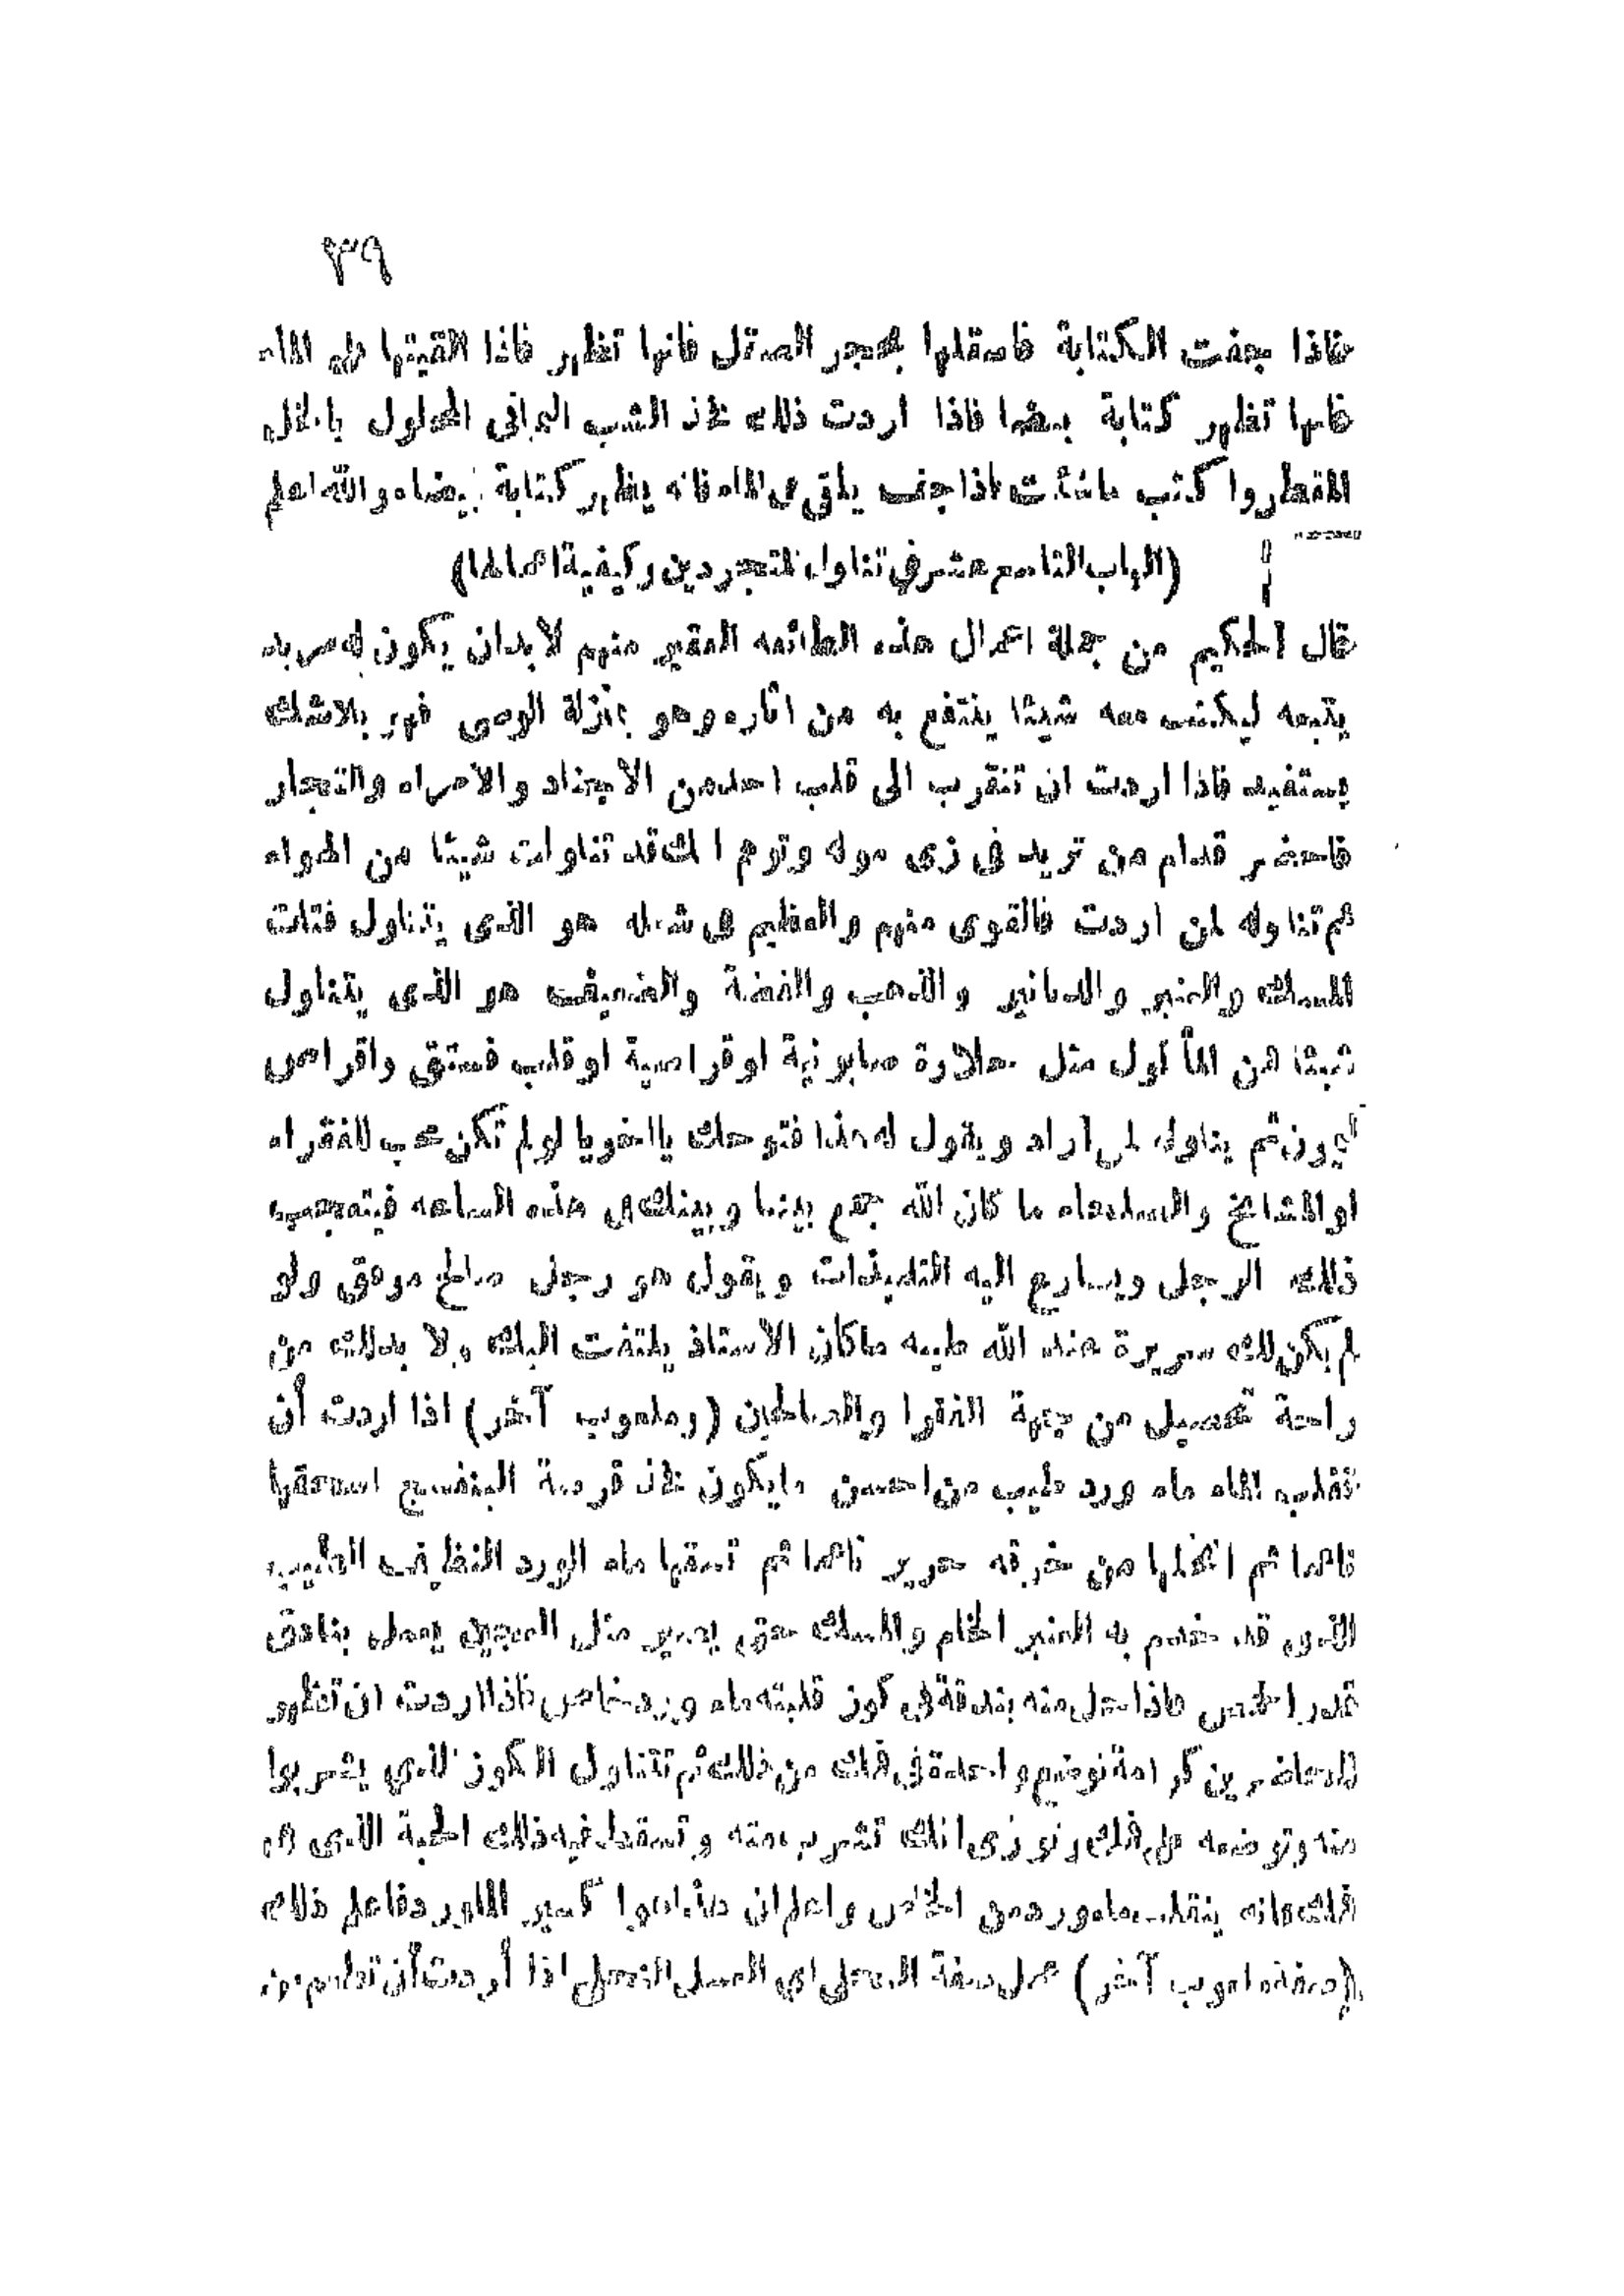 ٣٩
فاذا جفت الكتابة فاصقلها بمحجر الصقل فانها تظهر فاذا القيتها في الماء
فانها تظهر كتابة بيضا فاذا اردت ذلك فخذ الشب اليماني المحلول بالخل
المقطر واكتب ما شئت فاذا جف يلقى في الماء فانه يظهر كتابة بيضاء والله اعلم
(الباب التاسع عشر في تناول المتجردين وكيفية اعمالها)
قال الحكيم من جملة اعمال هذه الطائفه الفقير منهم لا بدان يكون له مريد
يتبعه ليكتسب معه شيئا ينتفع به من اثاره وهو بمنزلة الوصى فهو بلاشك
يستفيد فاذا اردت ان تتقرب الى قلب احد من الاجناد والامراء والتجار
فاحضر قدام من تريد فى زى موله وتوهم انك قد تناولت شيئا من الهواء
ثم تناوله لمن اردت فالقوى منهم والعظيم فى شغله هو الذى يتناول فتات
المسك والعنبر والدنانير والذهب والفضة والضعيف هو الذى يتناول
شيئا من المأكول مثل حلاوة صابونية او قراصية او قلب فستق واقراص
ليمون ثم يناوله لمن اراد ويقول له هذا فتوحك يا اخويا لولم تكن محب للفقراء
او المشايخ والصلحاء ما كان الله جمع بيننا وبينك فى هذه الساعه فيتعجب
ذلك الرجل ويسارع اليه التلميذات ويقول هو رجل صالح موفق ولو
لم يكن لك سريرة عند الله طيبه ما كان الاستاذ يلتفت اليك ولا بدلك من
راحة تحصيل من جهة الفقرا والصالحين (وملعوب آخر) اذا اردت أن
تقلب الماء ماء ورد طيب من احسن ما يكون فخذ قرصة البنفسج اسحقها
ناعما ثم انخلها من خرقه حرير ناعما ثم تسقها ماء الورد النظيف الطيب
الذى قد ختم به العنبر الخام والمسك حتى يصير مثل العجين يعمل بنادق
قدر الحمص فاذا حل منه بندقة فى كوز قلبته ماء ورد خاص فاذا اردت ان تظهر
للحاضرين كرامة توضع واحدة فى فمك من ذلك ثم تتناول الكوز الذى يشربوا
منه وتوضعه على فمك وتورى انك تشرب منه وتسقط فيه ذلك الحبة الذى فى
فمك فانه ينقلب ماء ورد من الخاص واعلم ان هذا هوا كسير الماورد فاعلم ذلك
(صفة ملعوب آخر) عمل صفة النحلى اي العسل النحل اذا أردت أن تطعم من